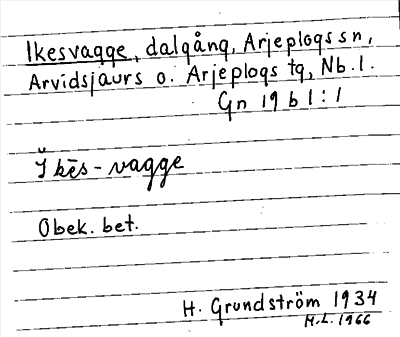 Ikesvagge, dalgång, Arjeplogs sn,
Arvidsjaurs o. Arjeplogs tg, Nb. l.
Gn 19 b 1:1
Ĭkēs-vagge
Obek. bet.
H. Grundström 1934
M.L. 1966